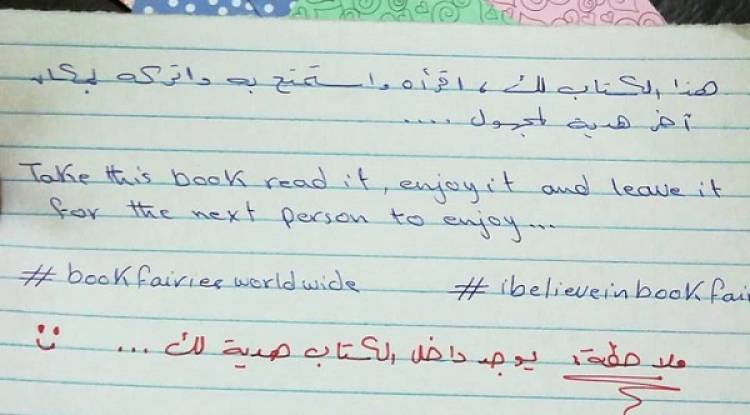 هذا الكتاب لك ، اقرأه واستمتع به واتركه بمكان
آخر هدية لمجهول ....
Take this book read it, enjoy it and leave it
for the next person to enjoy...
#bookfairiesworldwide #ibelieveinbookfai
ملاحظة: يوجد داخل الكتاب هدية لك ... :)